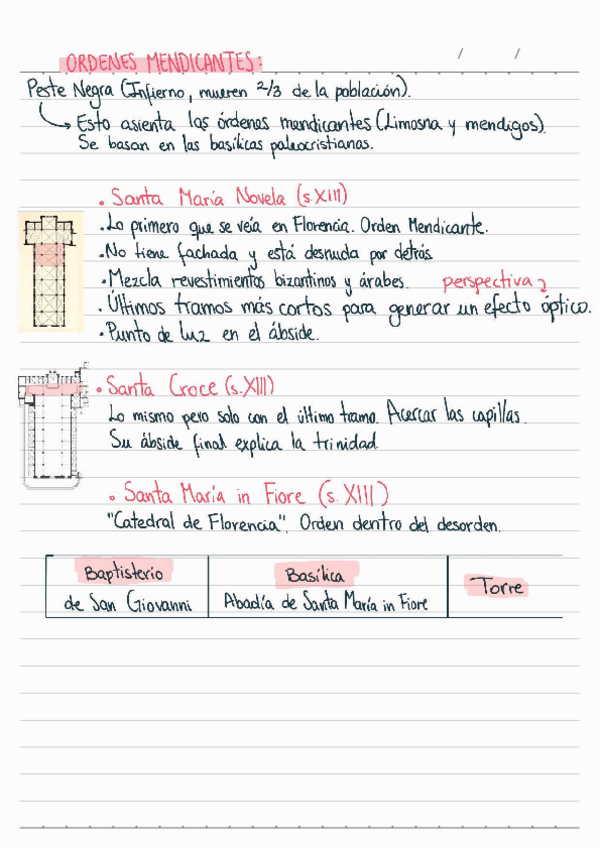 ORDENES MENDICANTES:
/ /
Peste Negra (Infierno, mueren 2/3 de la población).
Esto asienta las órdenes mendicantes (Limosna y mendigos).
Se basan en las basílicas paleocristianas.
• Santa María Novela (s.XIII)
• Lo primero que se veía en Florencia. Orden Mendicante.
• No tiene fachada y está desnuda por detrás
• Mezcla revestimientos bizantinos y árabes. perspectiva
• Últimos tramos más cortos para generar un efecto óptico.
• Punto de luz en el ábside.
• Santa Croce (s.XIII)
Lo mismo pero solo con el último tramo. Acercar las capillas.
Su ábside final explica la trinidad
• Santa María in Fiore (s. XIII)
"Catedral de Florencia". Orden dentro del desorden.
Baptisterio
de San Giovanni
Basílica
Abadía de Santa María in Fiore
Torre